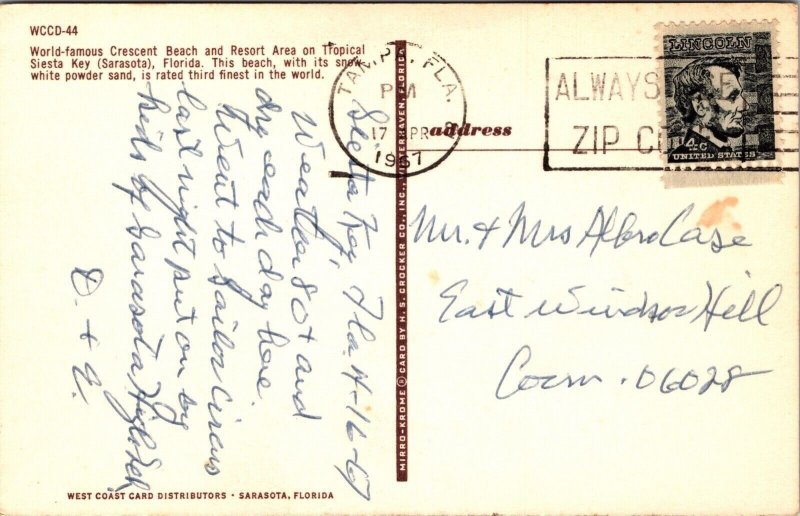 WCCD-44
World-famous Crescent Beach and Resort Area on Tropical
Siesta Key (Sarasota), Florida. This beach, with its snow
white powder sand, is rated third finest in the world.
Siesta Key, Fla. 4-16-67
Weather 80+ and
dry each day here.
Went to Sailor Circus
last night put on by
kids of Sarasota High Sch.
D. + E.
WEST COAST CARD DISTRIBUTORS • SARASOTA, FLORIDA
MIRRO-KROME ® CARD BY H. S. CROCKER CO., INC., WINTERHAVEN, FLORIDA
TAMPA, FLA.
PM
17 APR
1967
ALWAYS USE
ZIP CODE
LINCOLN
4c
UNITED STATES
address
Mr. + Mrs Albro Case
East Windsor Hill
Conn. 06028